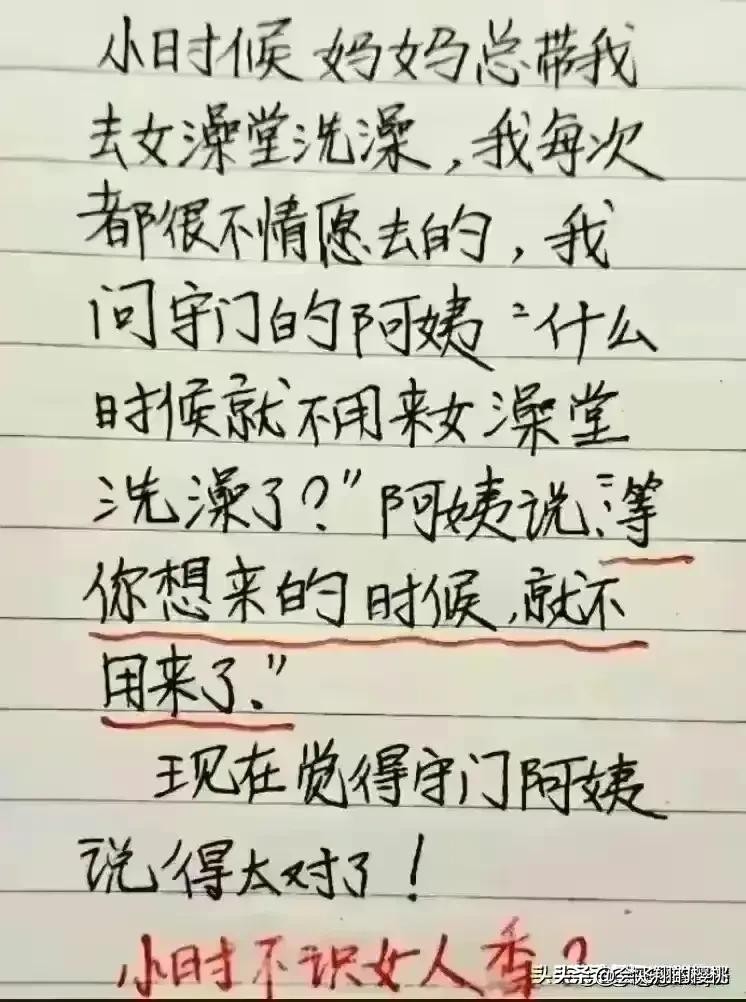 小时候妈妈总带我
去女澡堂洗澡，我每次
都很不情愿去的，我
问守门的阿姨："什么
时候就不用来女澡堂
洗澡了？"阿姨说："等
你想来的时候，就不
用来了。"
现在觉得守门阿姨
说得太对了！
小时不识女人香？
头条@会飞翔的樱桃